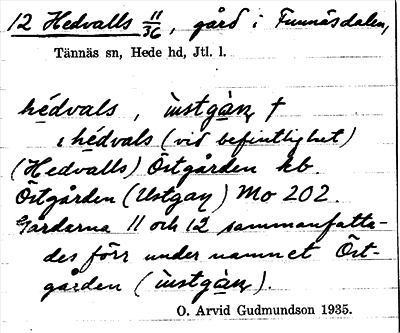 12 Hedvalls 11/36, gård i Funnäsdalen,
Tännäs sn, Hede hd, Jtl. l.
hédvals, ùstgàṇ †
ı hédvals (vid befintlighet)
(Hedvalls) Östgården kb.
Östgården (Ustgay) Mo 202.
Gårdarna 11 och 12 sammanfatta-
des förr under namnet Öst-
gården (ùstgàṇ).
O. Arvid Gudmundson 1935.